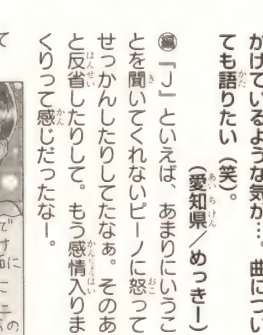 かけているような気が…。曲につい
ても語りたい（笑）。
（愛知県／めっきー）
編『J』といえば、あまりにいうこ
とを聞いてくれないピーノに怒って
せっかんしたりしてたなぁ。そのあ
と反省したりして。もう感情入りま
くりって感じだったなー。
て